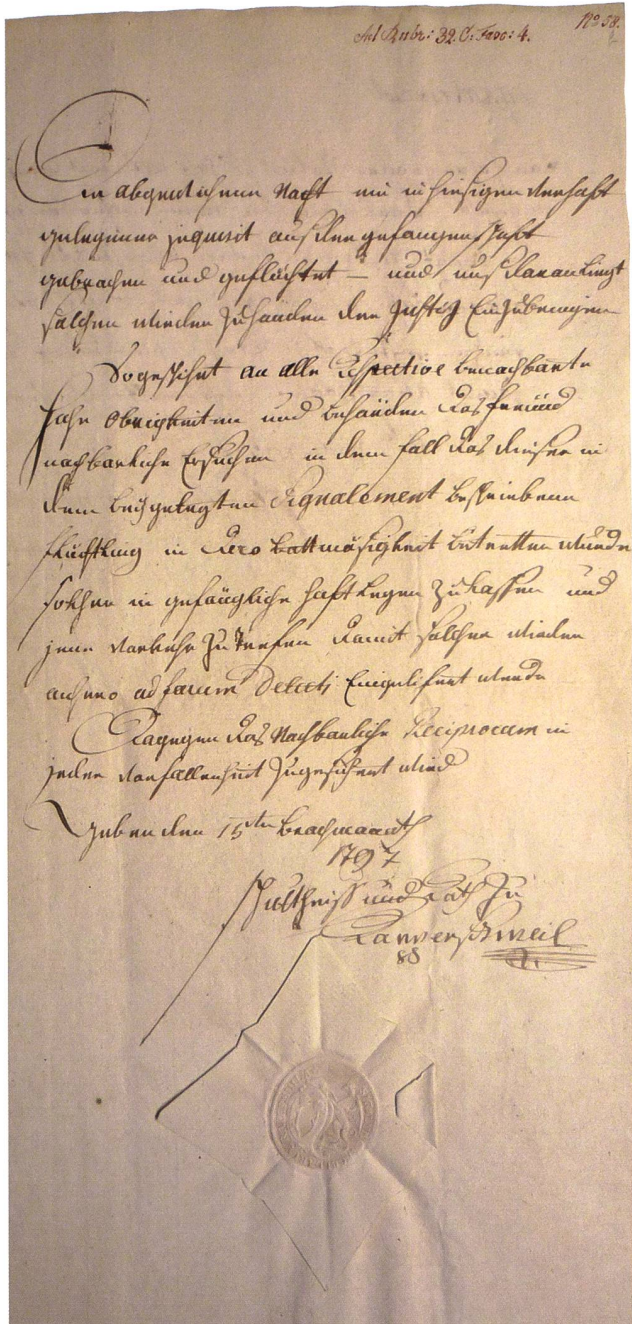 Ad Rubr: 32. C: Fasc: 4.
No 58.
Da abgewichener Nacht ein in hiesigen Verhaft
gelegener Inquisit aus der gefangenschaft
gebrochen und geflüchtet – und uns daran Liegt
solchen wieder zuhanden der Justiz Einzubringen
So gelanget an alle Respective benachbarte
Hohe Obrigkeiten und behörden das freünd
nachbarliche Ersuchen in dem fall das dieser in
dem beÿgelegten Signalement beschriebene
flüchtling in Dero Bottmäsigkeit betretten wurde
solcher in gefängliche haft Legen zu Lassen und
jene Vorkehr zu trefen damit solcher wieder
anhero ad forum Delicti Eingelifert werde
Dagegen das Nachbarliche Reciprocum in
jeder Vorfallenheit zugesichert wird
Geben den 15ten brachmonath
1797
Schultheiss und Rath zu
Rapperschweil